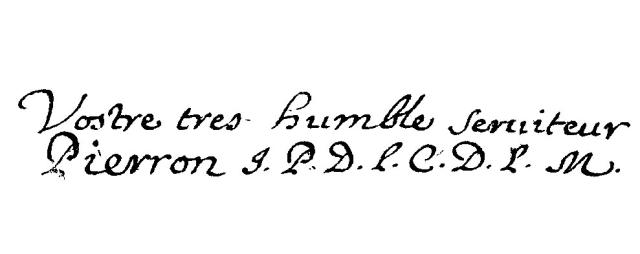 Vostre tres humble seruiteur
Pierron J. P. D. l. C. D. P. M.